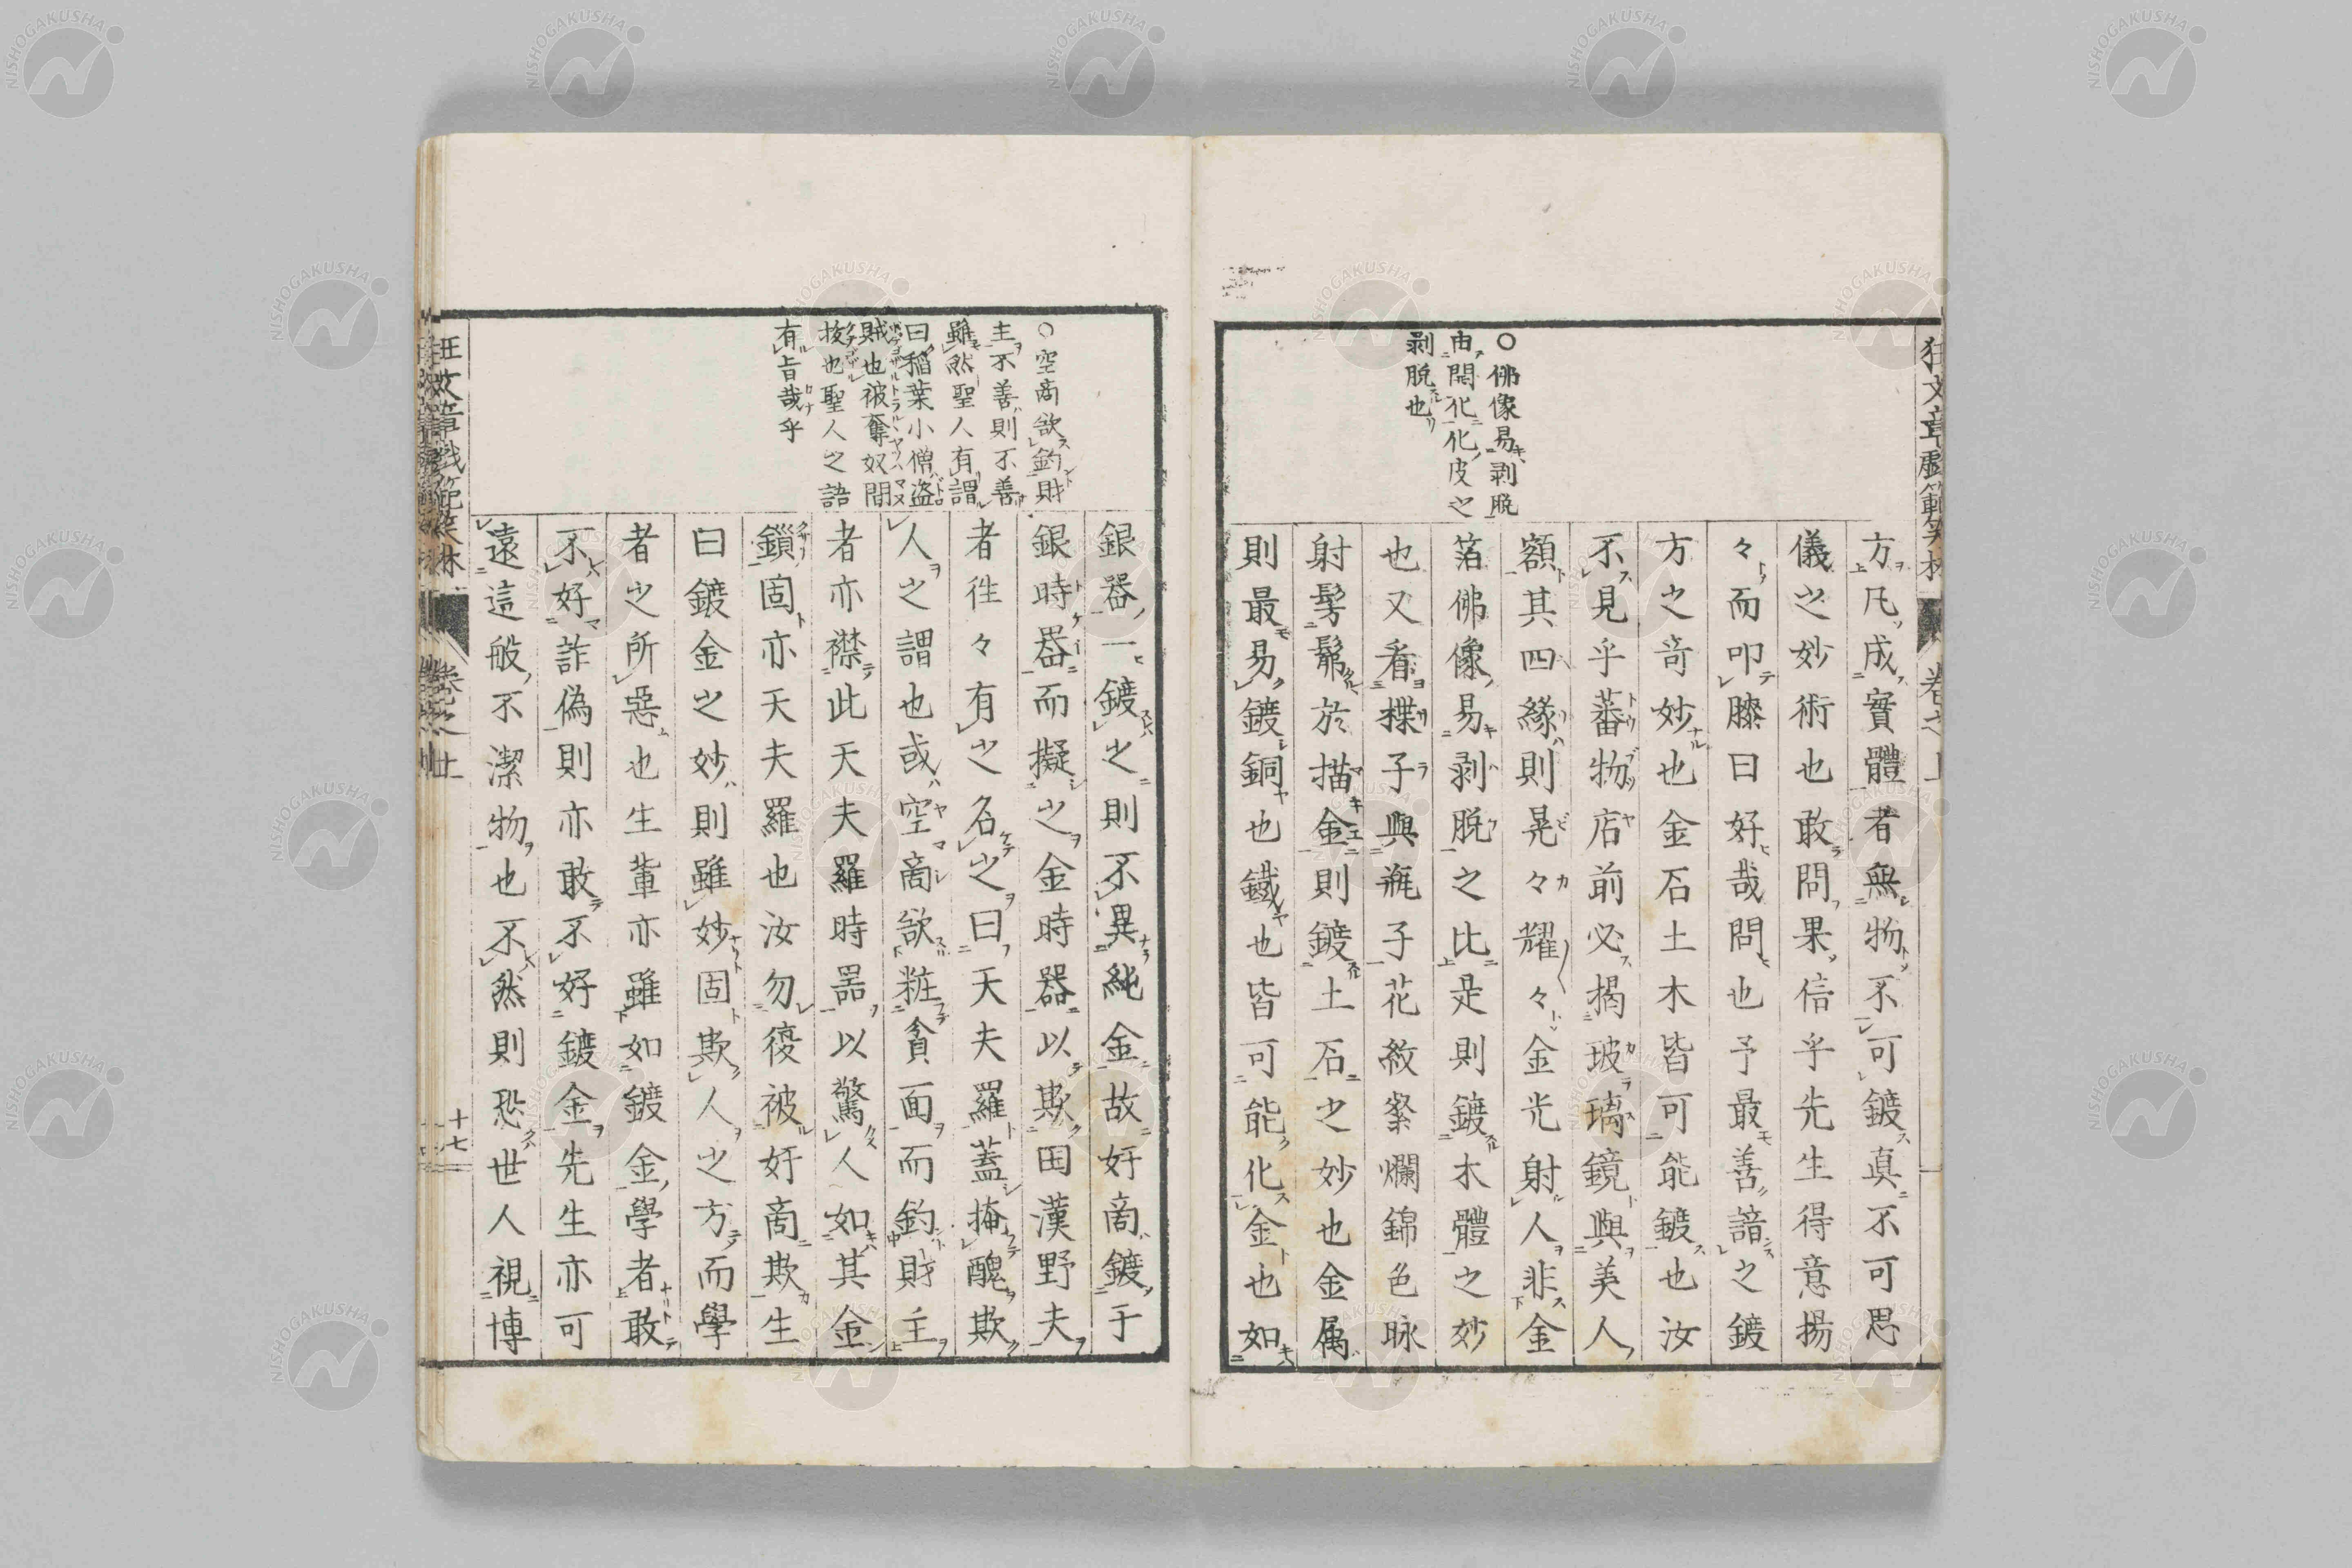 方凡成實體者無物不可鍍真不可思
儀之妙術也敢問果信乎先生得意揚
々而叩膝曰好哉問也予最善諳之鍍
方之奇妙也金石土木皆可能鍍也汝
不見乎蕃物店前必揭玻璃鏡與美人
額其四緣則晃々耀々金光射人非金
箔佛像易剥脱之比是則鍍木體之妙
也又看楪子與瓶子花紋爛錦色昹
射髣髴於描金則鍍土石之妙也金属
則最易鍍銅也鐵也皆可能化金也如
○佛像易剥脱
由開化化皮之
剥脱也
銀器一鍍之則不異純金故奸商鍍于
銀時器而擬之金時器以欺田漢野夫
者徃々有之名之曰天夫羅蓋掩醜欺
人之謂也或空商欲粧貪面而釣財主
者亦襟此天夫羅時器以驚人如其金
鎖固亦天夫羅也汝勿復被奸商欺生
曰鍍金之妙則雖妙固欺人之方而學
者之所惡也生輩亦雖如鍍金學者敢
不好詐偽則亦敢不好鍍金先生亦可
遠這般不潔物也不然則恐世人視博
○空商欲釣財
主不善則不善
雖然聖人有謂
曰稲葉小僧盗
賊也被奪奴間
抜也聖人之語
有旨哉乎
狂文章戯範笑林
卷之上
十七
NISHOGAKUSHA